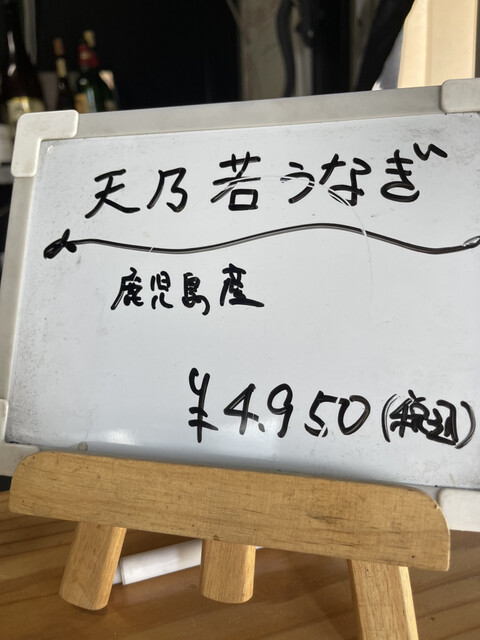 天乃若うなぎ
鹿児島産
¥4,950(税込)